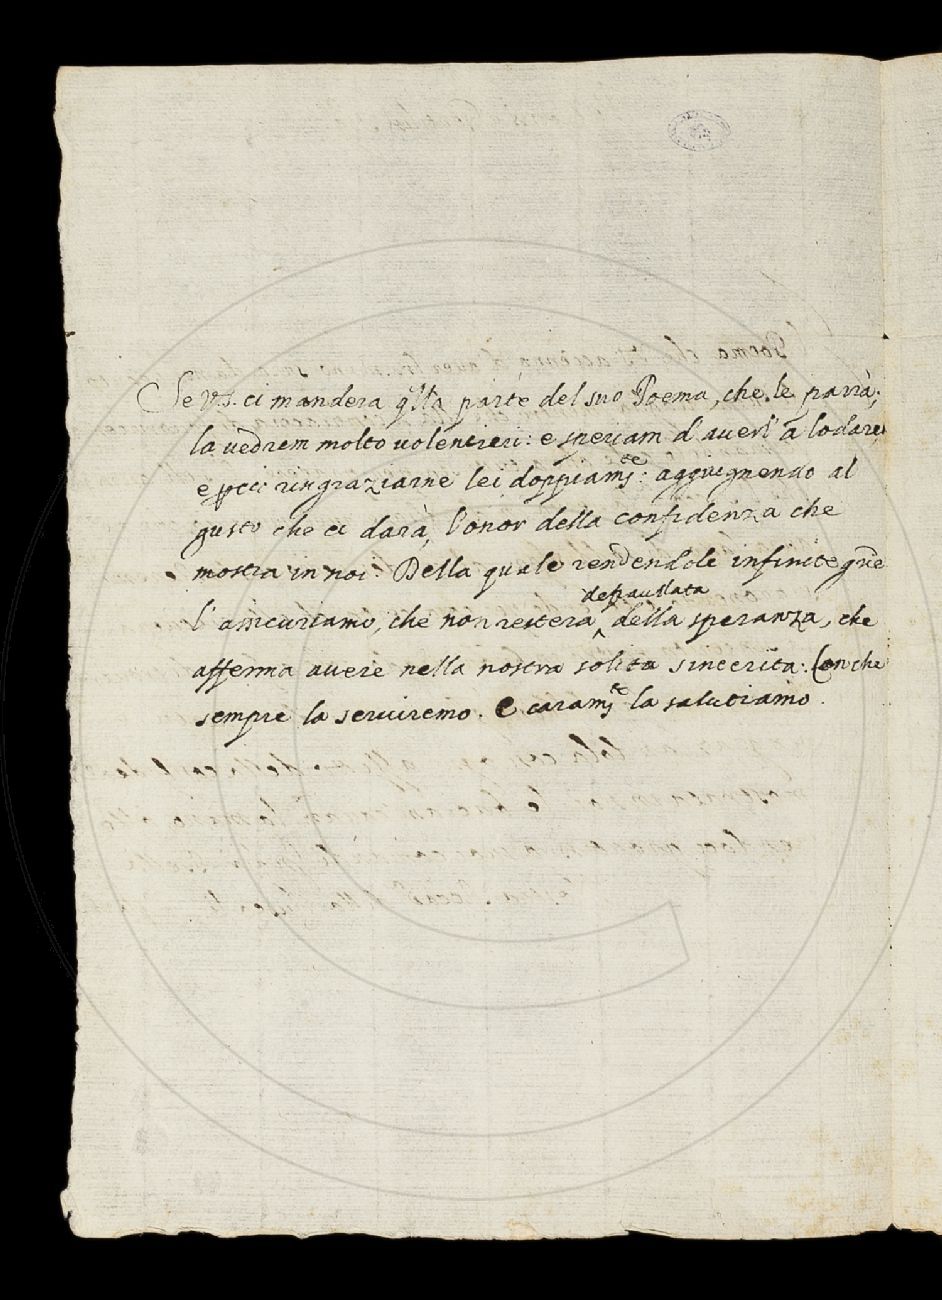 Se VS. ci manderà qlla parte del suo Poema, che le parrà;
la vedrem molto volentieri: e speriam d'averl' à lodare,
e ringraziarne lei doppiamte: aggiugnendo al
gusto che ci darà, l'onor della confidenza che
mostra in noi. Della quale rendendole infinite gre
l'assicuriamo, che non resterà ^ defraudata della speranza, che
afferma avere nella nostra solita sincerità. Con che
sempre la serviremo. E caramte la salutiamo.